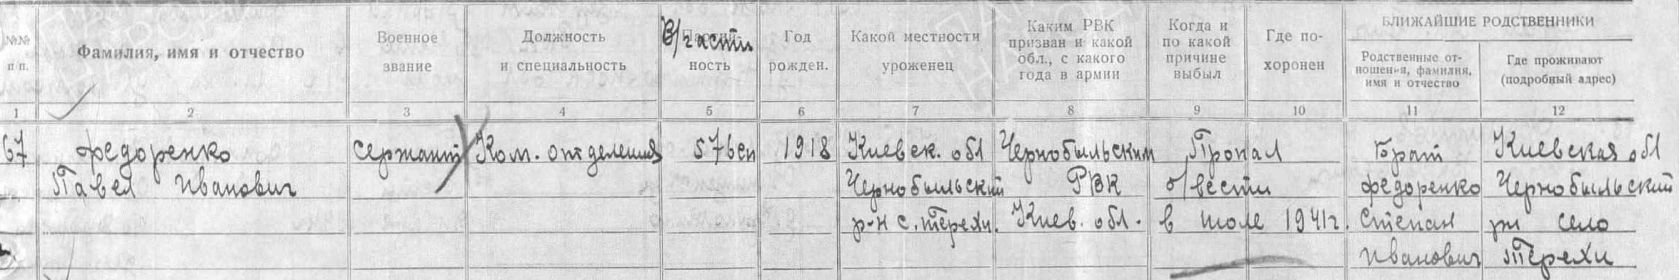 №№ п п.
Фамилия, имя и отчество
Военное звание
Должность и специальность
В/части
ность
Год рожден.
Какой местности уроженец
Каким РВК призван и какой обл., с какого года в армии
Когда и по какой причине выбыл
Где похоронен
БЛИЖАЙШИЕ РОДСТВЕННИКИ
Родственные отношения, фамилия, имя и отчество
Где проживают (подробный адрес)
1 2 3 4 5 6 7 8 9 10 11 12
67 Федоренко сержант Ком. отделения 1918 Киевск. обл Чернобыльским Пропал Брат Киевская обл
Павел Иванович Чернобыльский РВК б/вести Федоренко Чернобыльский
р-н с. Терехи. Киев. обл. в июле 1941г. Степан рн село
Иванович Терехи